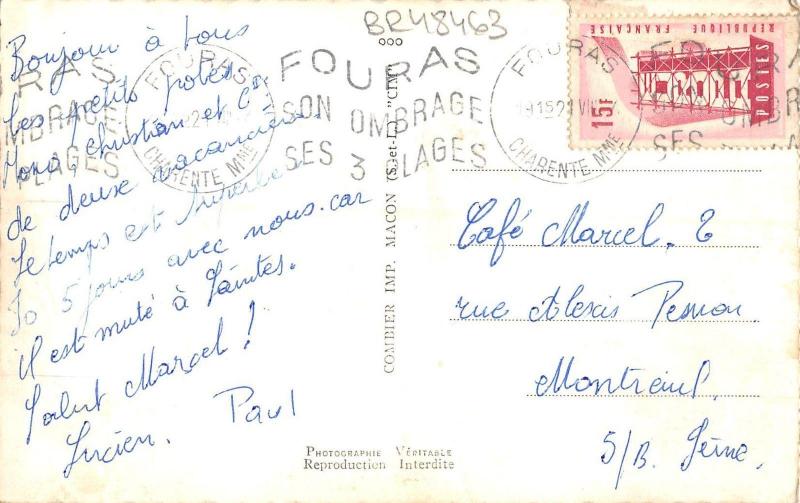 BR48463
Bonjour à tous
Les petits potes
Mono, Christian et Cie
de deux vacanciers.
Le temps est superbe
Jo 5 jours avec nous. car
il est muté à Saintes.
Salut Marcel !
Lucien. Paul
RAS
MBRAGE
PLAGES
FOURAS
CHARENTE Mme
FOURAS
SON OMBRAGE
SES 3 PLAGES
COMBIER IMP. MACON (S.-et-L.) "CIM"
PHOTOGRAPHIE VÉRITABLE
Reproduction Interdite
FOURAS
CHARENTE Mme
REPUBLIQUE FRANÇAISE
POSTES
15F
SES
Café Marcel. 2
rue Alexis Pesnon
Montreuil.
S/B. Seine.